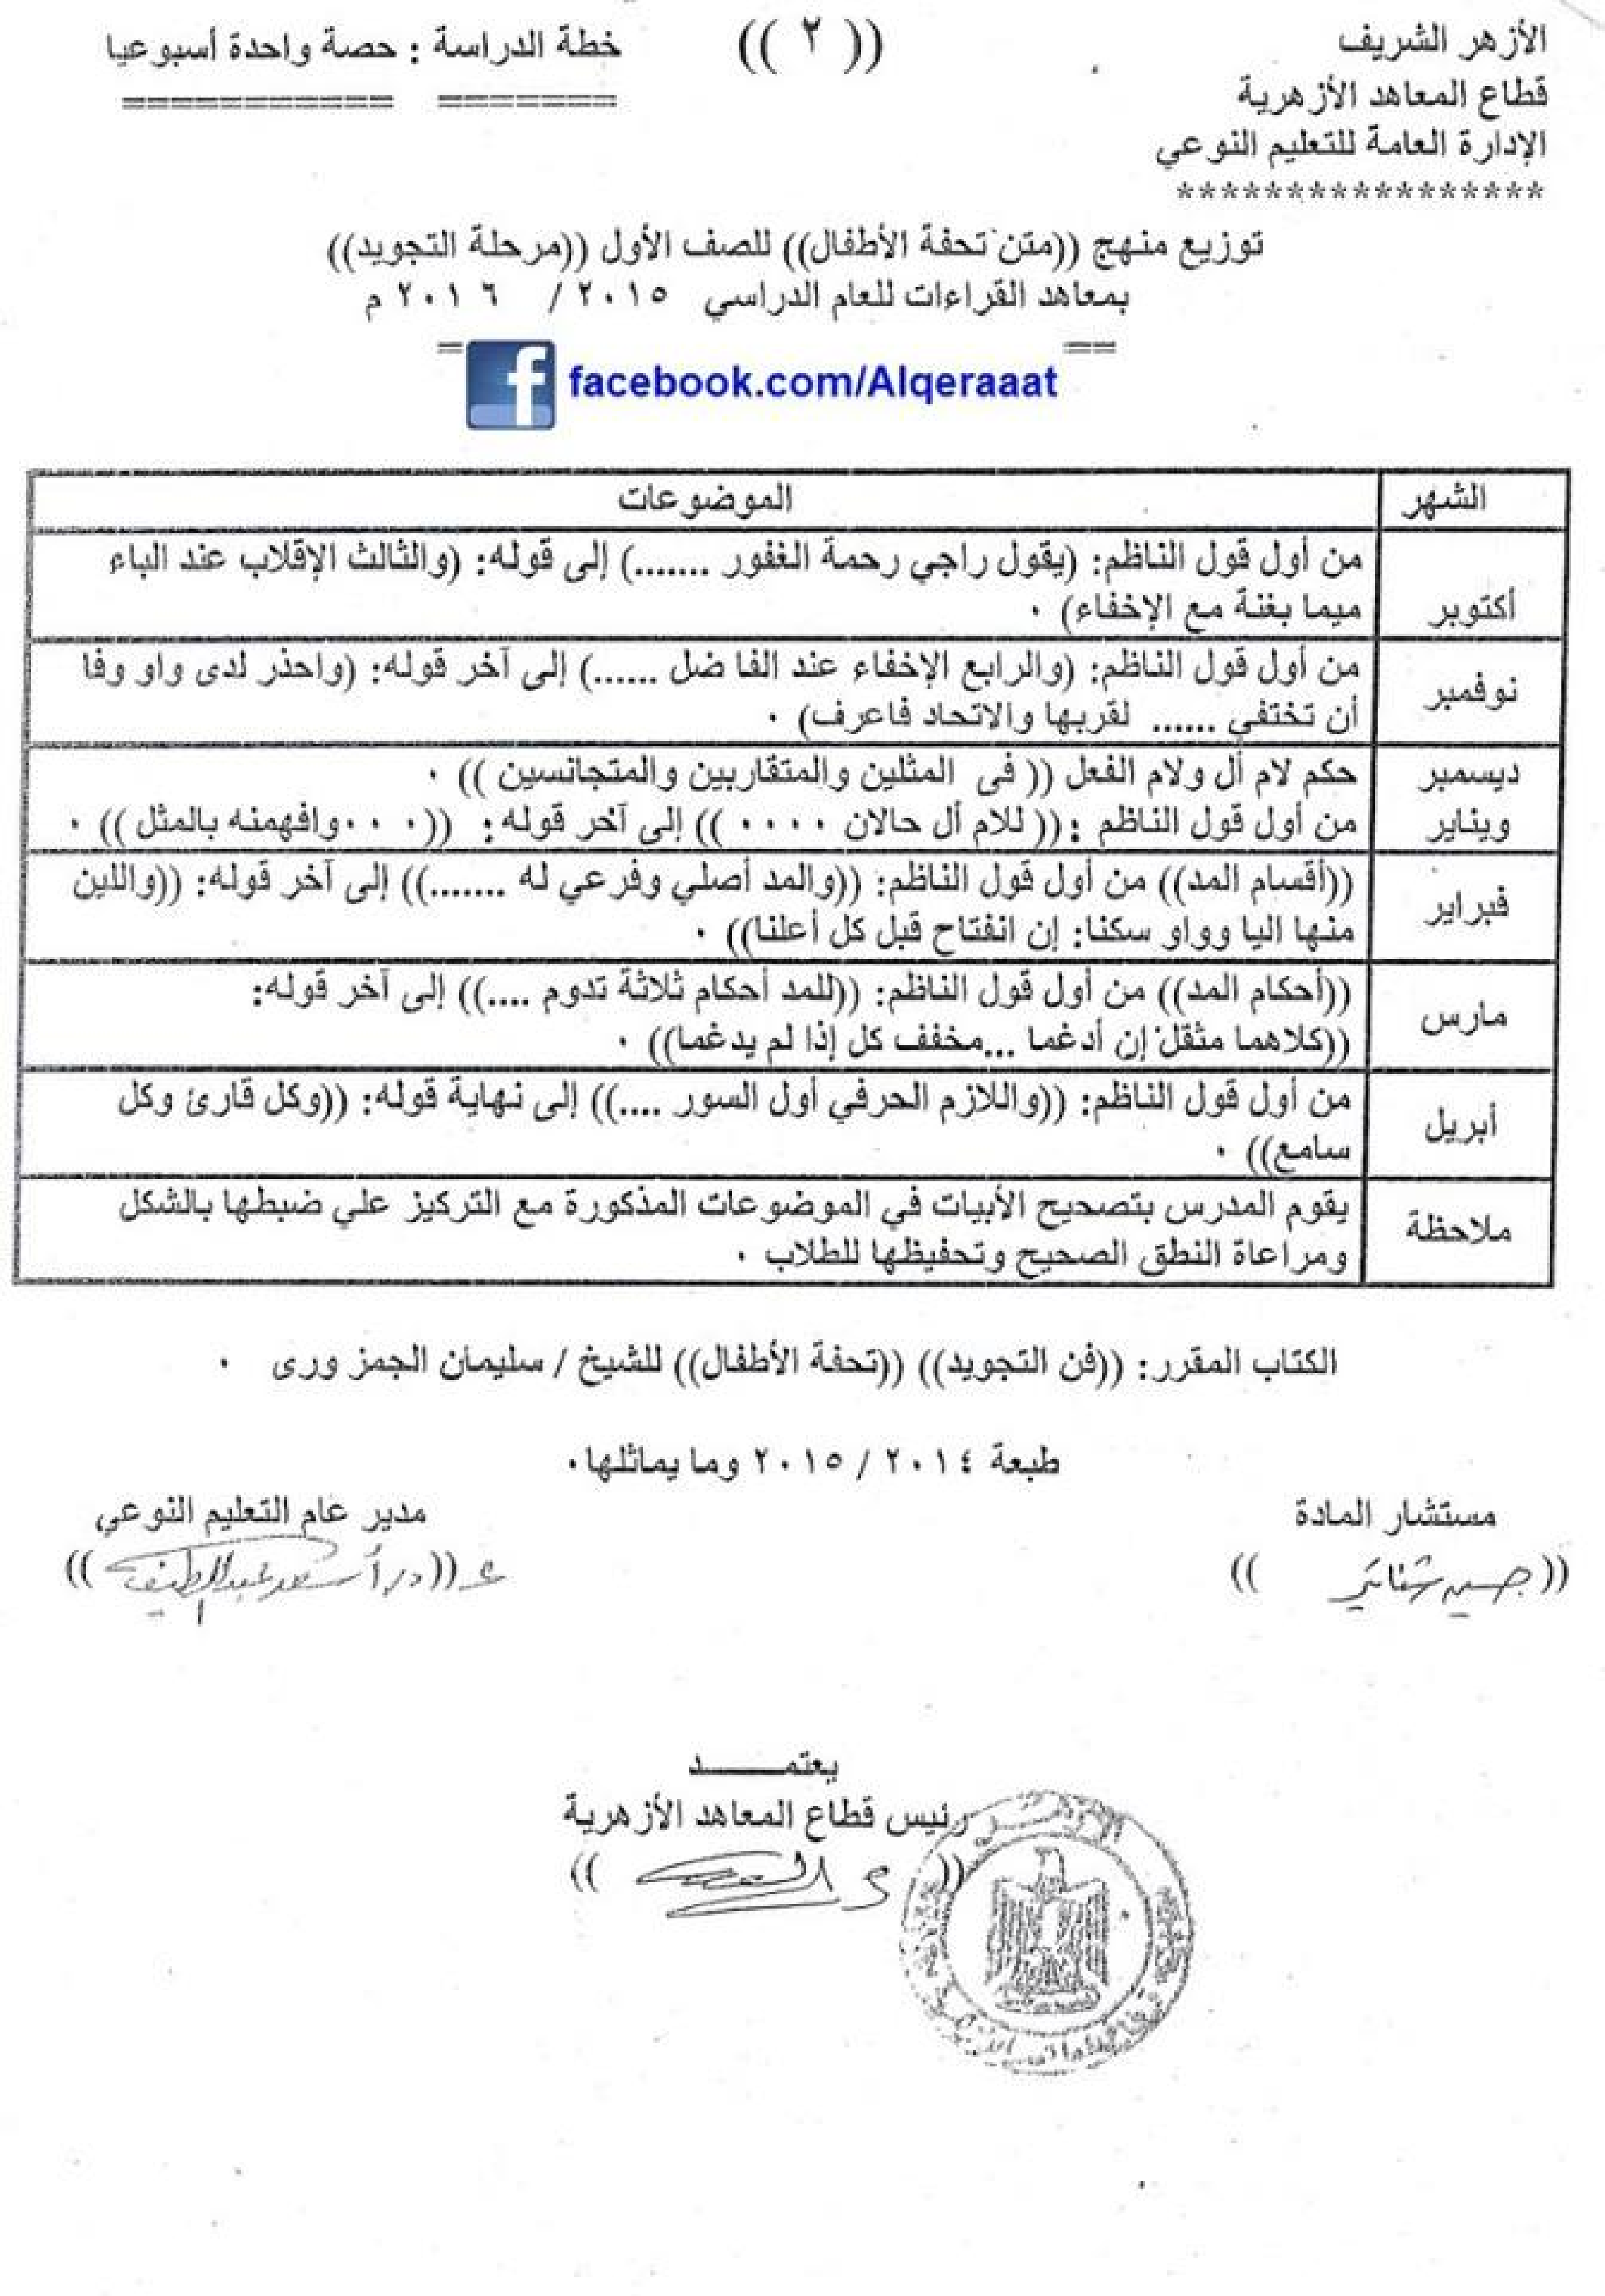 الأزهر الشريف
قطاع المعاهد الأزهرية
الإدارة العامة للتعليم النوعي
*****************
((٢))
خطة الدراسة : حصة واحدة أسبوعيا
توزيع منهج ((متن تحفة الأطفال)) للصف الأول ((مرحلة التجويد))
بمعاهد القراءات للعام الدراسي ٢٠١٥/ ٢٠١٦ م
facebook.com/Alqeraaat
الشهر
الموضوعات
أكتوبر
من أول قول الناظم: (يقول راجي رحمة الغفور .......) إلى قوله: (والثالث الإقلاب عند الباء
ميما بغنة مع الإخفاء) ٠
نوفمبر
من أول قول الناظم: (والرابع الإخفاء عند الفا ضل ......) إلى آخر قوله: (واحذر لدى واو وفا
أن تختفي ...... لقربها والاتحاد فاعرف) ٠
ديسمبر
ويناير
حكم لام أل ولام الفعل (( فى المثلين والمتقاربين والمتجانسين )) ٠
من أول قول الناظم :(( للام أل حالان ٠٠٠٠ )) إلى آخر قوله: ((٠٠٠وافهمنه بالمثل )) ٠
فبراير
((أقسام المد)) من أول قول الناظم: ((والمد أصلي وفرعي له .......)) إلى آخر قوله: ((واللين
منها اليا وواو سكنا: إن انفتاح قبل كل أعلنا)) ٠
مارس
((أحكام المد)) من أول قول الناظم: ((للمد أحكام ثلاثة تدوم ....)) إلى آخر قوله:
((كلاهما مثقل إن أدغما ...مخفف كل إذا لم يدغما)) ٠
أبريل
من أول قول الناظم: ((واللازم الحرفي أول السور ....)) إلى نهاية قوله: ((وكل قارئ وكل
سامع)) ٠
ملاحظة
يقوم المدرس بتصحيح الأبيات في الموضوعات المذكورة مع التركيز علي ضبطها بالشكل
ومراعاة النطق الصحيح وتحفيظها للطلاب ٠
الكتاب المقرر: ((فن التجويد)) ((تحفة الأطفال)) للشيخ / سليمان الجمز ورى ٠
طبعة ٢٠١٤ / ٢٠١٥ وما يماثلها٠
مستشار المادة
مدير عام التعليم النوعي
يعتمــــــد
رئيس قطاع المعاهد الأزهرية